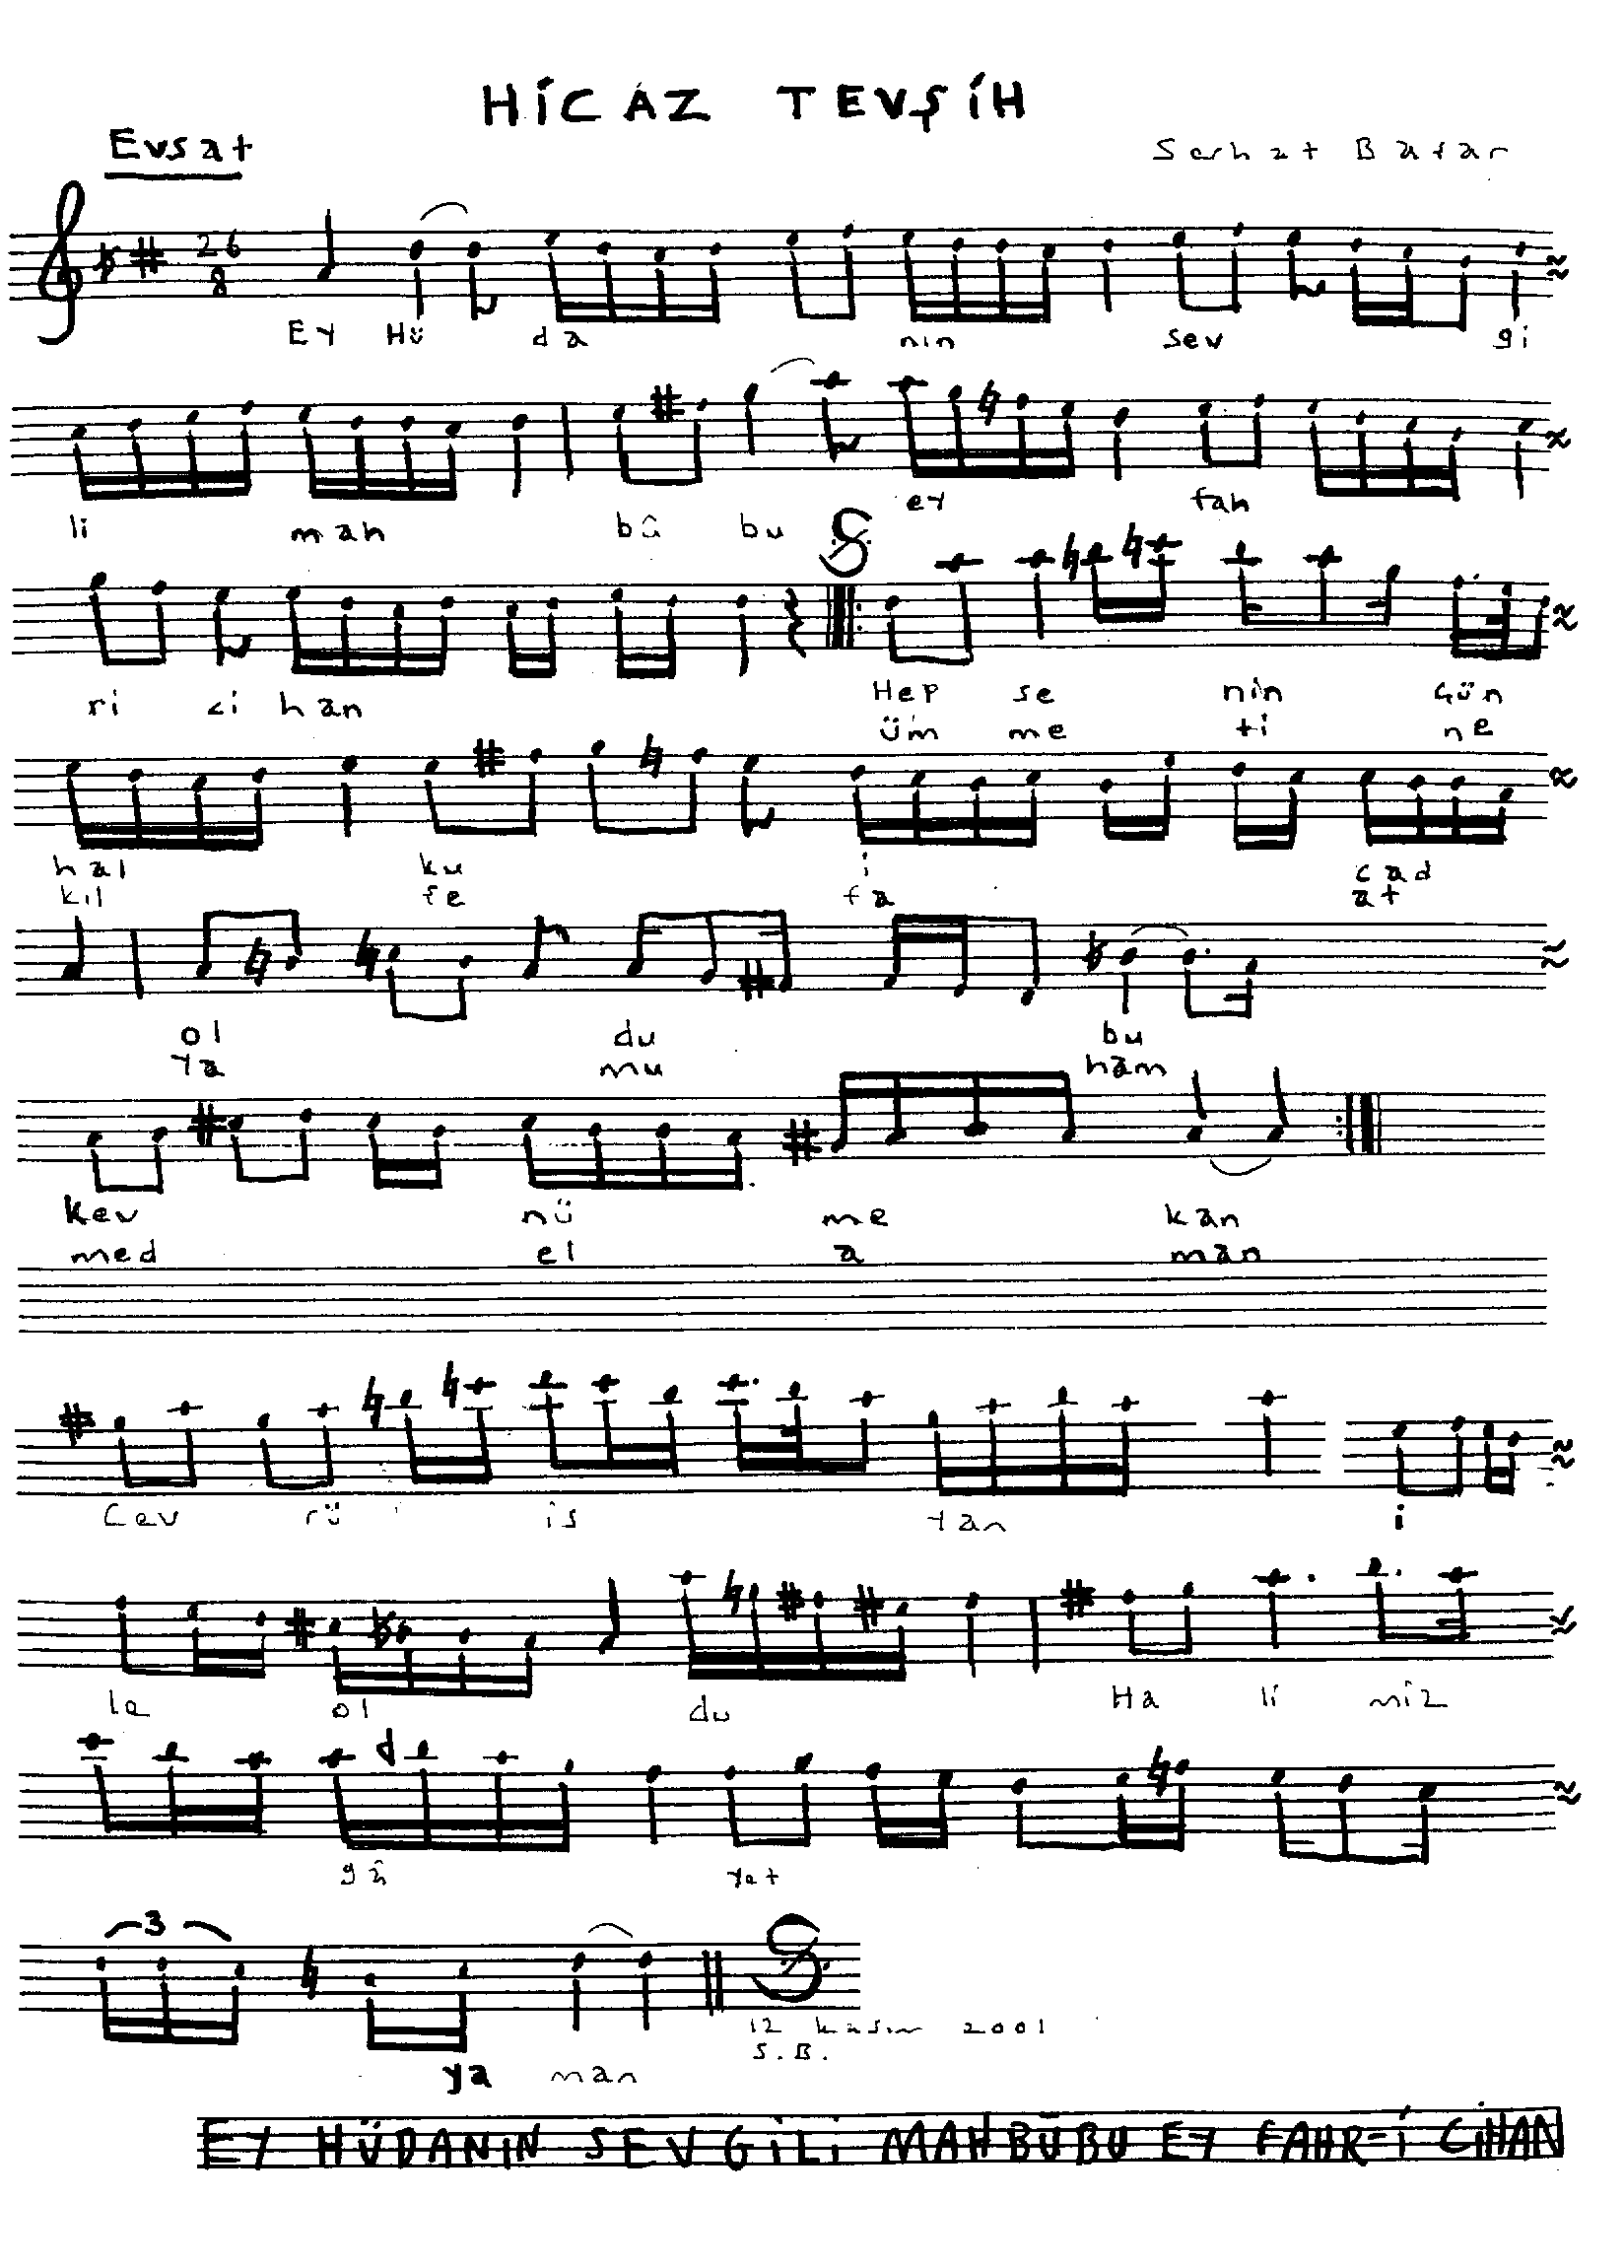 HİCAZ TEVŞİH
Evsat
Serhat
26
8
EY Hü da nın sev gi
li mah bû bu ey fah
ri ci han Hep se nin Gün
üm me ti ne
hal ku i cad
kıl şe fa at
ol du bu
Ya mu ham
kev nü me kan
med el a man
Cev rü is yan i
le ol du Ha li miz
gâ yet
3
12 kasım 2001
S.B.
ya man
EY HÜDANIN SEVGİLİ MAHBÛBU EY FAHR-İ CİHAN